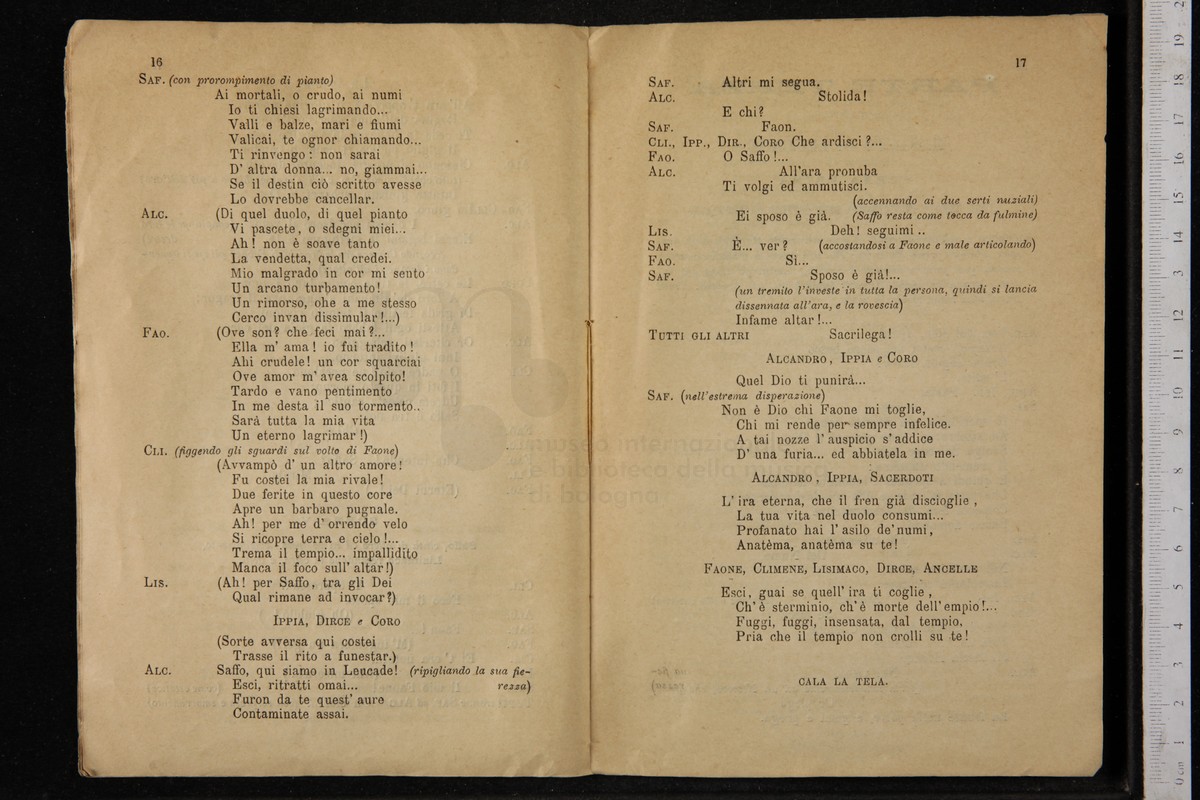 16
SAF. (con prorompimento di pianto)
Ai mortali, o crudo, ai numi
Io ti chiesi lagrimando...
Valli e balze, mari e fiumi
Valicai, te ognor chiamando...
Ti rinvengo : non sarai
D' altra donna... no, giammai...
Se il destin ciò scritto avesse
Lo dovrebbe cancellar.
ALC. (Di quel duolo, di quel pianto
Vi pascete, o sdegni miei...
Ah ! non è soave tanto
La vendetta, qual credei.
Mio malgrado in cor mi sento
Un arcano turbamento!
Un rimorso, che a me stesso
Cerco invan dissimular!...)
FAO. (Ove son? che feci mai?...
Ella m' ama ! io fui tradito !
Ahi crudele! un cor squarciai
Ove amor m' avea scolpito!
Tardo e vano pentimento
In me desta il suo tormento..
Sarà tutta la mia vita
Un eterno lagrimar !)
CLI. (figgendo gli sguardi sul volto di Faone)
(Avvampò d' un altro amore!
Fu costei la mia rivale!
Due ferite in questo core
Apre un barbaro pugnale.
Ah! per me d' orrendo velo
Si ricopre terra e cielo!...
Trema il tempio... impallidito
Manca il foco sull' altar!)
LIS. (Ah! per Saffo, tra gli Dei
Qual rimane ad invocar?)
IPPIA, DIRCE e CORO
(Sorte avversa qui costei
Trasse il rito a funestar.)
ALC. Saffo, qui siamo in Leucade! (ripigliando la sua fie-
Esci, ritratti omai... rezza)
Furon da te quest' aure
Contaminate assai.
17
SAF. Altri mi segua.
ALC. Stolida!
E chi?
SAF. Faon.
CLI., IPP., DIR., CORO Che ardisci?...
FAO. O Saffo!...
ALC. All'ara pronuba
Ti volgi ed ammutisci.
(accennando ai due serti nuziali)
Ei sposo è già. (Saffo resta come tocca da fulmine)
LIS. Deh! seguimi..
SAF. È... ver? (accostandosi a Faone e male articolando)
FAO. Sì...
SAF. Sposo è già!...
(un tremito l'investe in tutta la persona, quindi si lancia
dissennata all'ara, e la rovescia)
Infame altar!...
TUTTI GLI ALTRI Sacrilega!
ALCANDRO, IPPIA e CORO
Quel Dio ti punirà...
SAF. (nell'estrema disperazione)
Non è Dio chi Faone mi toglie,
Chi mi rende per sempre infelice.
A tai nozze l' auspicio s' addice
D' una furia... ed abbiatela in me.
ALCANDRO, IPPIA, SACERDOTI
L' ira eterna, che il fren già discioglie ,
La tua vita nel duolo consumi...
Profanato hai l' asilo de' numi,
Anatèma, anatèma su te!
FAONE, CLIMENE, LISIMACO, DIRCE, ANCELLE
Esci, guai se quell' ira ti coglie ,
Ch' è sterminio, ch' è morte dell' empio!...
Fuggi, fuggi, insensata, dal tempio,
Pria che il tempio non crolli su te!
CALA LA TELA.
museo internazionale
e biblioteca della musica
di bologna
0 cm 1 2 3 4 5 6 7 8 9 10 11 12 13 14 15 16 17 18 19